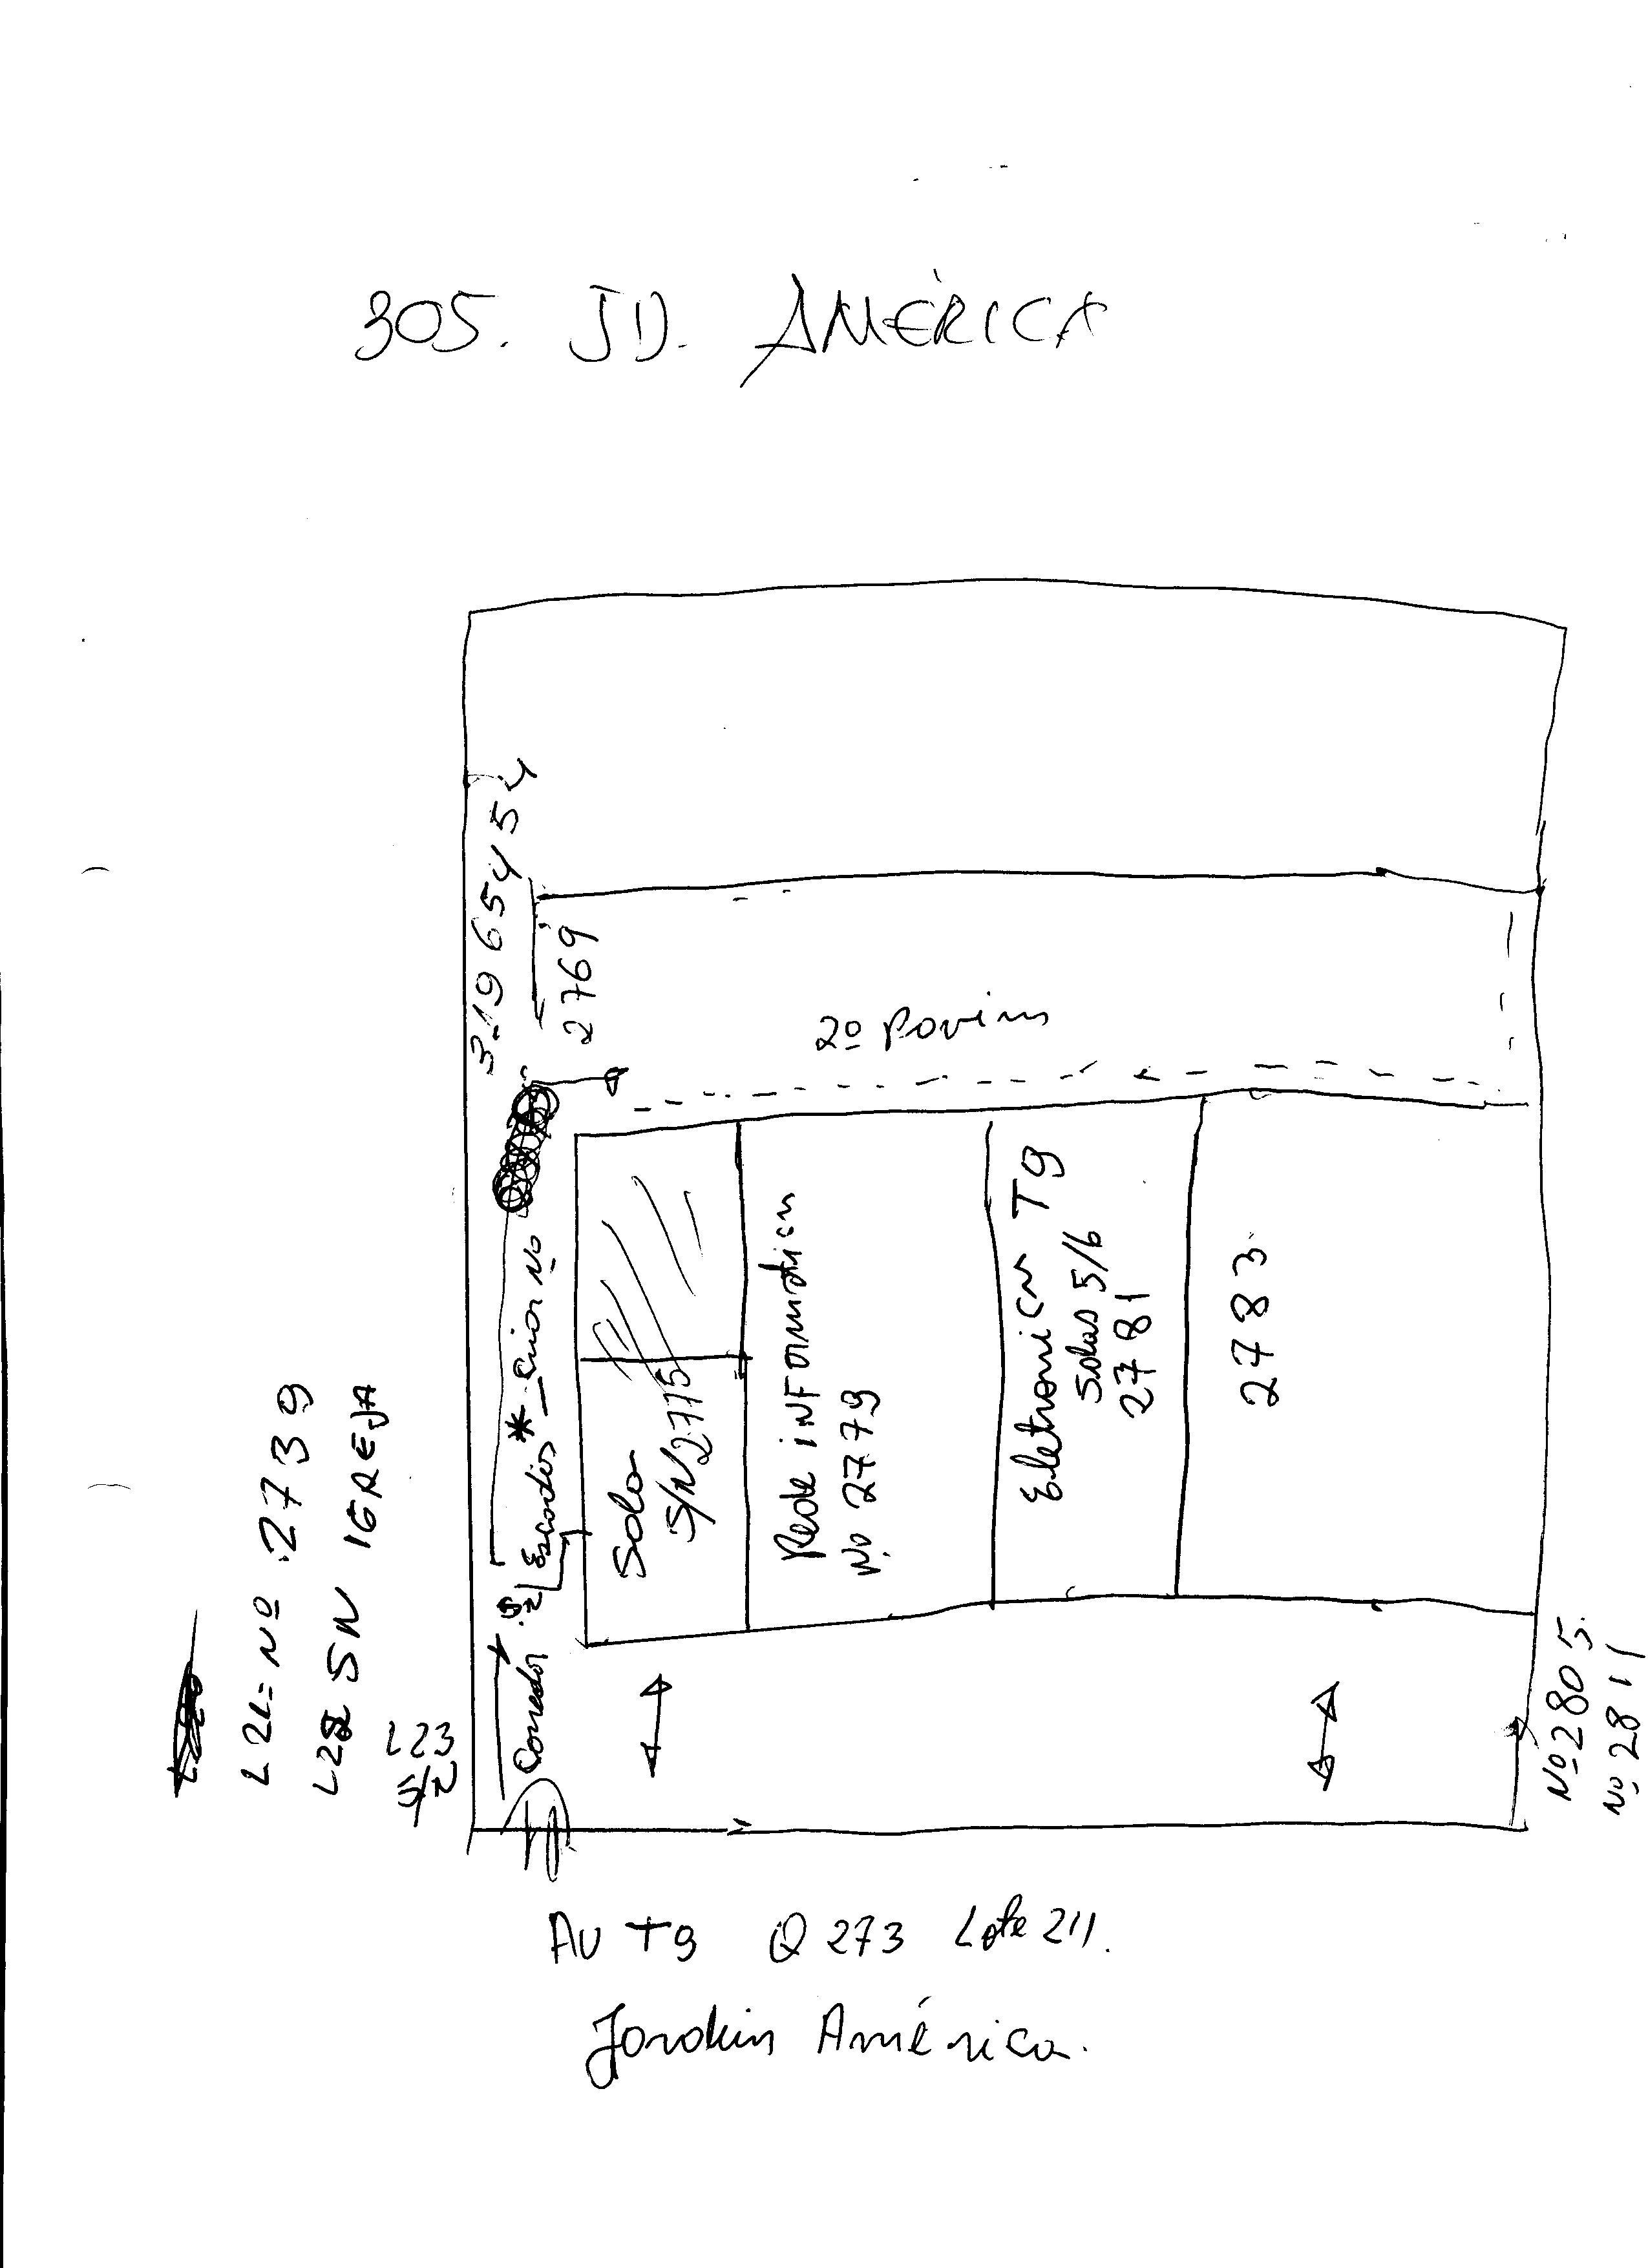 305. JD. AMÉRICA
3.1965454
2769
2º Pavim
* criar Nº
Escada
Corredor
Sala
S/N 2775
Rede INFormatica
Nº 2779
Eletronica T9
Salas 5/6
2781
2783
L21= Nº 2739
L22 SN IGREJA
L23
S/N
Nº 2805
Nº 2811
AV T9 Q 273 Lote 211.
Jardim América.